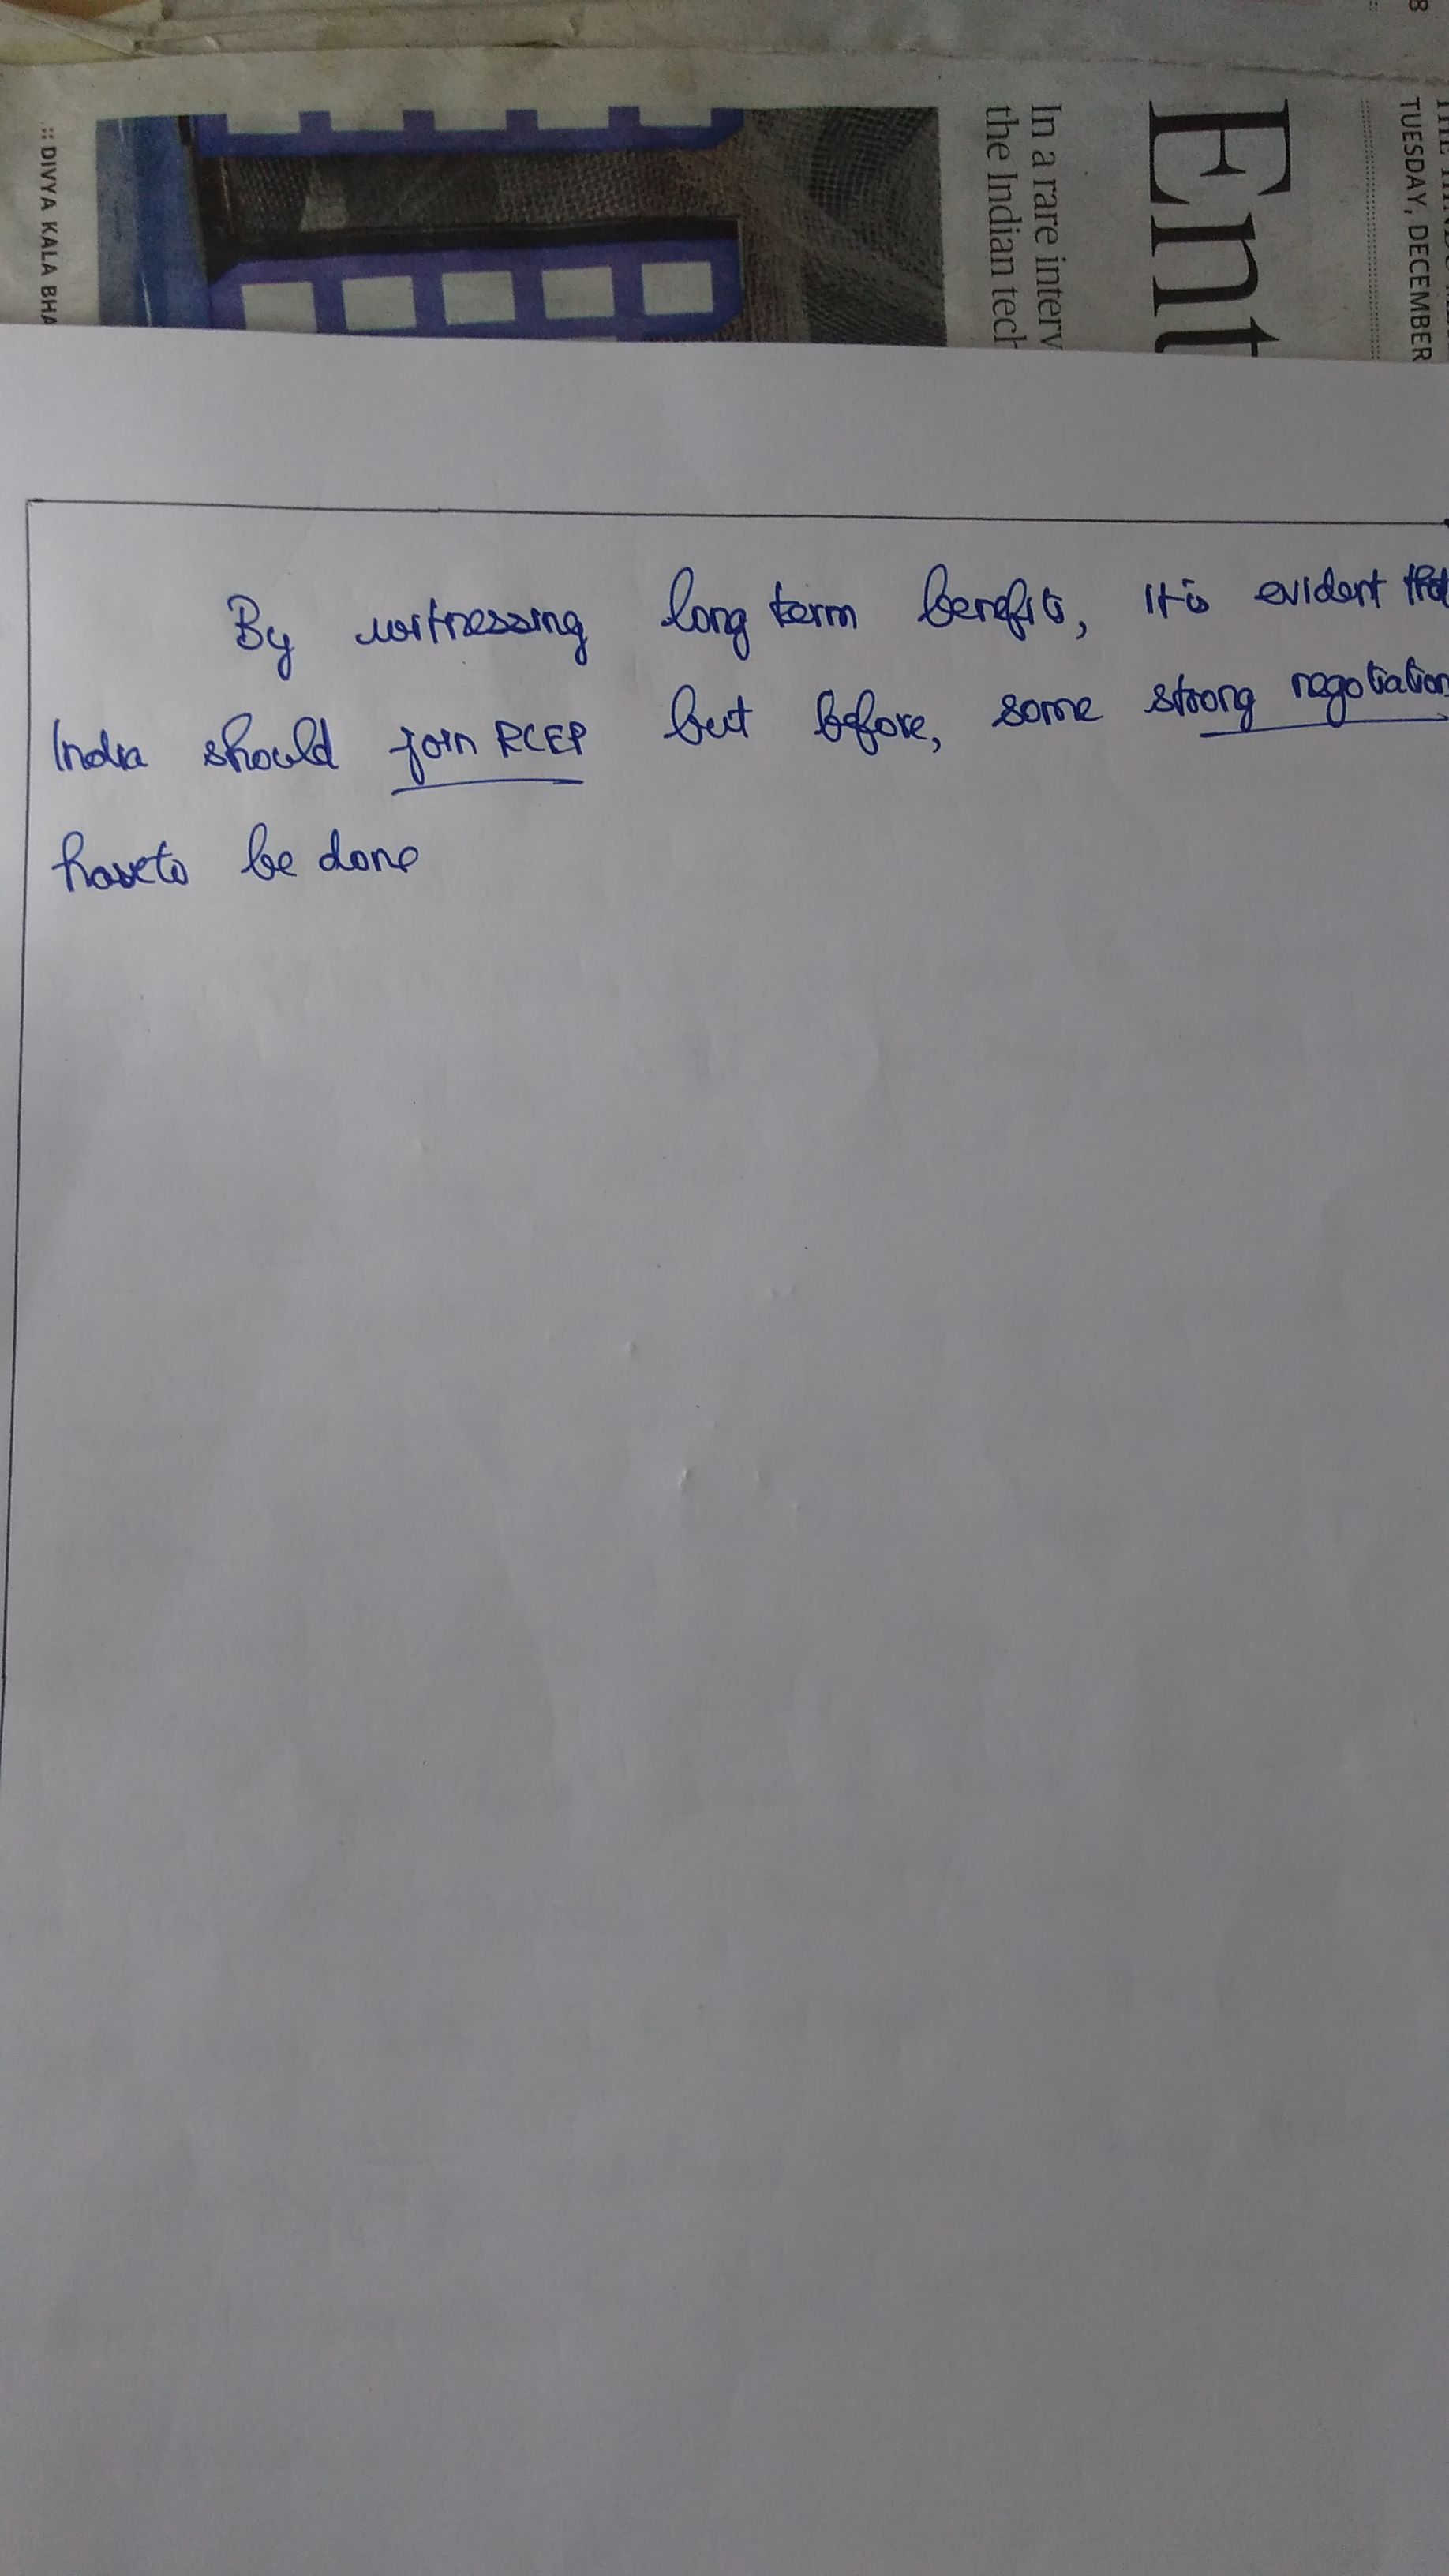 8
TUESDAY, DECEMBER
Ent
In a rare interv
the Indian tech
:: DIVYA KALA BHA
By witnessing long term benefits, it is evident that
India should join RCEP but before, some strong negotiation
have to be done